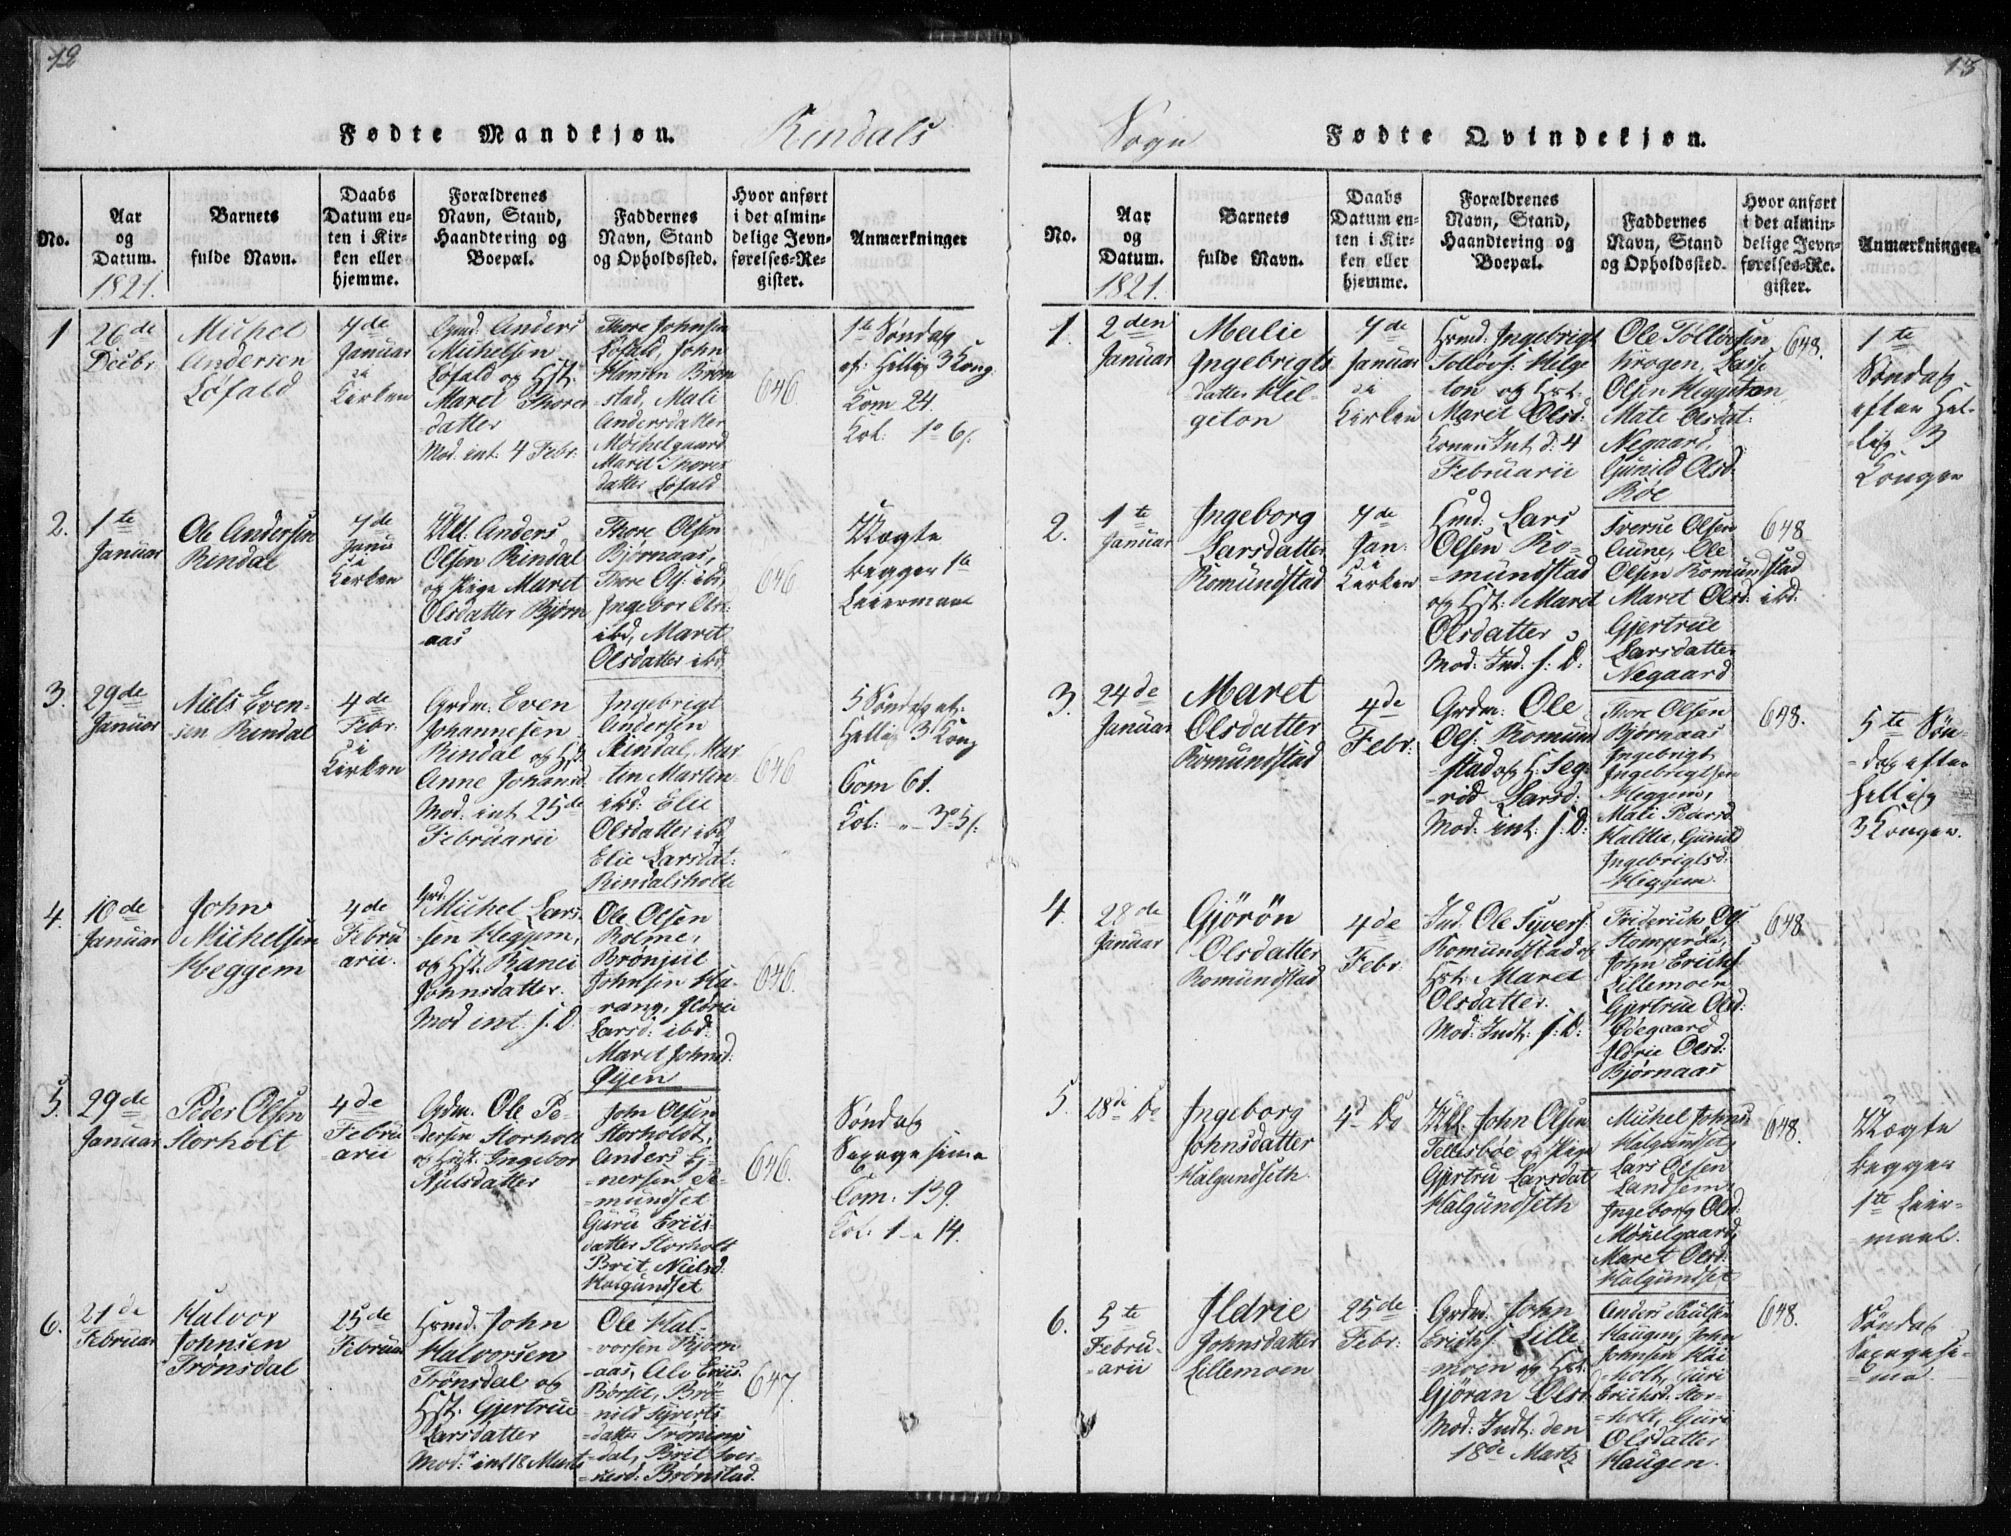 12
13
Fødte Mandkjøn.
Rindals
Sogn
Fødte Qvindekjøn.
No.
Aar
og
Datum.
1821.
Barnets
fulde Navn.
Daabs
Datum en-
ten i Kir-
ken eller
hjemme.
Forældrenes
Navn, Stand,
Haandtering og
Boepæl.
Faddernes
Navn, Stand
og Opholdssted.
Hvor anført
i det almin-
delige Jevn-
førelses-Re-
gister.
Anmærkninger
1
26de
Decbr
Michel
Andersen
Løfald
7de
Januar
i
Kirken
Grmd. Anders
Michelsen
Løfald og Hst:
Maret Thores
datter
Mod. int: 4 Febr:
Thore Johnsen
Løfald, John
Hansen Brøn
-stad, Mali
Andersdatter
Møchelgaard
Maret Thores
datter Løfald
646
1te Søndag
ef: Hellig 3 Kong
Kom 24.
Kol:
2.
1te
Januar
Ole Andersen
Rindal
7de
Janu
i
Kirken
Ukl. Anders
Olsen Rindal
og Pige Maret
Olsdatter Bjørn
-aas
Thore Olsen
Bjørnaas,
Thore Ols: ibd,
Ingebor Ols:
ibd, Marit
Olsdatter ibd
646
Uægte
begges 1te
Leiermaal
3.
29de
Januar
Niels Even-
-sen Rindal
4de
Febr:
i
Kirken
Grdm. Even
Johannesen
Rindal og Hst:
Anne Johansd
Mod. int 25de
Februarii
Ingebrigt
Andersen
Rindal, Mar
-tin Martin-
ibd: Elie
Olsdatter ibd
Elie Larsdat:
Rindalsholte
646
5 Søndag ef:
Hellig 3 Kong
Com 61.
Kol:
4.
10de
Januar
John
Michelsen
Heggem
4de
Febru
arii.
Grd:
Michel Lars-
-sen Heggem,
og Hst: Ranei
Johnsdatter.
Mod int: s: D:
Ole Olsen
Bolme,
Brønjul
Johnsen Ka-
-rang, Ildrie
Larsd: ibd:
Maret Johnsd:
Øyen
646.
5.
29de
Januar
Peder Olsen
Storholt
4de
Febru
-arii
Grdm. Ole Pe-
-dersen Storholt
og Hst: Ingebor
Nielsdatter
John Olsen
Storholdt,
Anders Ej-
-nersen Ro-
-mundset
Guru Erics-
datter Storholt
Brit Nielsd:
Halgundset
646.
Søndag
Sexagesima
Com: 139.
Kol: 1 - 14.
6.
21de
Februar
Halvor
Johnsen
Trønsdal
25de
Februar
Hsmd. John
Halvorsen
Trønsdal og
Hst: Gjertrue
Larsdatter
Mod: int 18 Marts
Ole Hal-
-vorsen Bjørn
-aas, Ole Erics.
Børset, Brø-
-nild Syverts
-datter Trøns
-dal, Brit Iver
-sdatt: Brønstad.
647.
No.
Aar
og
Datum.
1821.
Barnets
fulde Navn.
Daabs
Datum en-
ten i Kir-
ken eller
hjemme.
Forældrenes
Navn, Stand,
Haandtering og
Boepæl.
Faddernes
Navn, Stand
og Opholdssted.
Hvor anført
i det almin-
delige Jevn-
førelses-Re-
gister.
Anmærkninger.
1.
2den
Januar
Malie
Ingebrigts
datter Hel-
geton
7de
Januar
i
Kirken
Hsmd: Ingebrigt
Tollevs: Helge
ton og Hst:
Marit Olsd:
Konen Int d: 4
Februarii
Ole Tollevsen
Krogen, Lasse
Olsen Heggetron
Mate Olsdat:
Negaard
Gunild Olsd:
Bøe
648.
1te
Søndag
efter Hel-
-lig 3
Konger
2.
1te
Januar
Ingeborg
Larsdatter
Romundstad
7de
Jan:
i
Kirken
Hmd: Lars
Olsen Ro-
-mundstad
og Hst: Maret
Olsdatter
Mod: Ind. s: D:
Sverre Olsen
Aune, Ole
Olsen Romundstad
Maret Olsd: ibd:
Gjertrue
Larsdatter
Negaard
648
3.
24de
Januar
Maret
Olsdatter
Romundstad
4de
Febr:
Grdm: Ole
Ols: Romund
-stad og H: Seg-
-rid Larsd:
Mod: int: s: D:
Thore Olsen
Bjørnaas
Ingebrigt
Ingebrigtsen
Heggem,
Mali Baarsd
Halle, Gunild
Ingebrigtsd:
Heggem
648.
5te Søn-
-dag efter
hellig
3 Konger.
4.
28de
Januar
Gjørøn
Olsdatter
Romundstad
4de
Febr:
Ind. Ole Syvers:
Romundstad og
Hst: Maret
Olsdatter.
Mod: Indt: s: D:
Friderich Ols:
Stomprøe,
John Erichs:
Lillemoen
Gjertrue Olsd:
Ødegaard
Ildrie Olsd:
Bjørnaas
648
5.
28de Do
Ingeborg
Johnsdatter
Halgundseth
4d Do
Ukl. John Olsen
Tellesbøe og Pige
Gjertru Larsdat
Halgundseth
Michel Johns
Halgundset,
Lars Olsen
Landsem,
Ingeborg Olsd:
Møkelgaard,
Maret Olsd:
Halgundset
648.
Uægte
begges
1te Leier-
-maal.
6.
5te
Febru-
-arii
Ildrie
Johnsdatter
Lillemoen
25de
Febr:
Grdm: John
Erichs: Lille
-moen og Hst:
Gjøran Olsd
Mod: Indt: den
18de Marts
Anders Paulsen
Haugen, John
Johnsen
-holt, Guri
Erichsd: Stor-
-holt, Guri
Olsdatter
Haugen.
648.
Søndag
Sexagesi-
-ma.